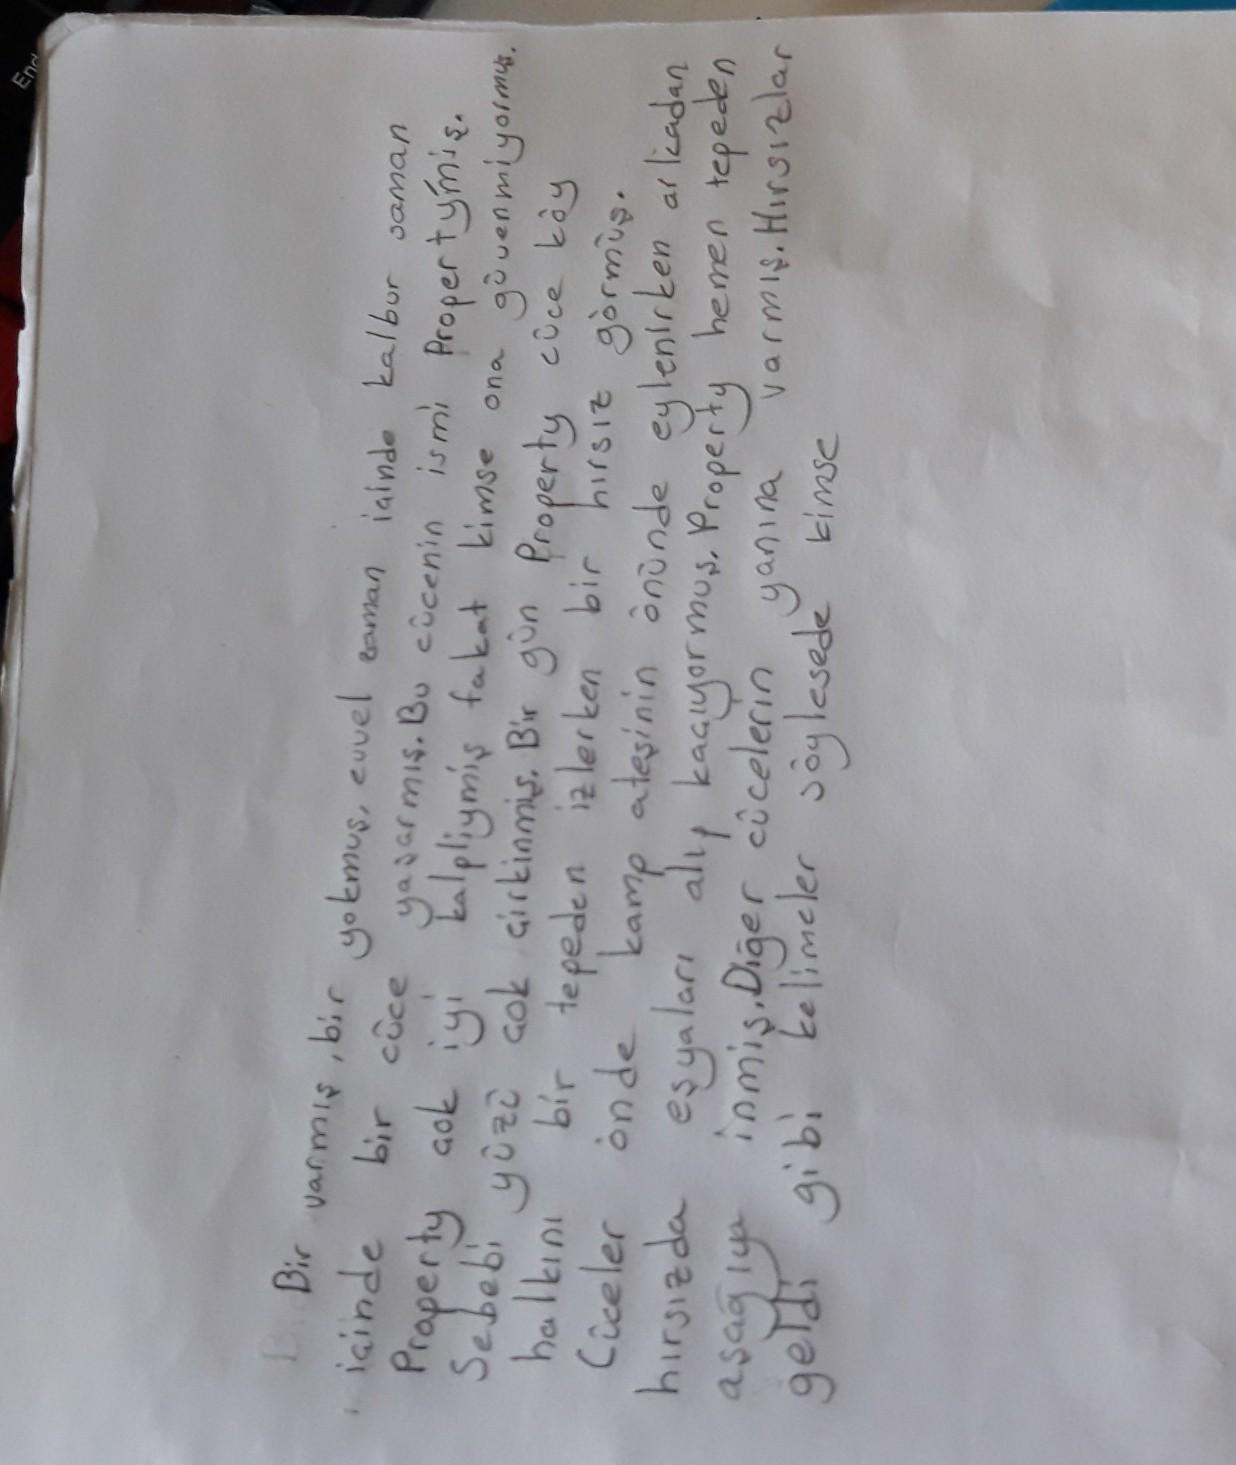 Bir varmış, bir yokmuş, evvel zaman içinde kalbur saman
içinde bir cüce yaşarmış. Bu cücenin ismi Propertymiş.
Property çok iyi kalpliymiş fakat kimse ona güvenmiyormuş.
Sebebi yüzü çok çirkinmiş. Bir gün Property cüce köy
halkını bir tepeden izlerken bir hırsız görmüş.
Cüceler önde kamp ateşinin önünde eylenirken arkadan
hırsızda eşyaları alıp kaçıyormuş. Property hemen tepeden
aşağıya inmiş. Diğer cücelerin yanına varmış. Hırsızlar
geldi gibi kelimeler söylesede kimse
End